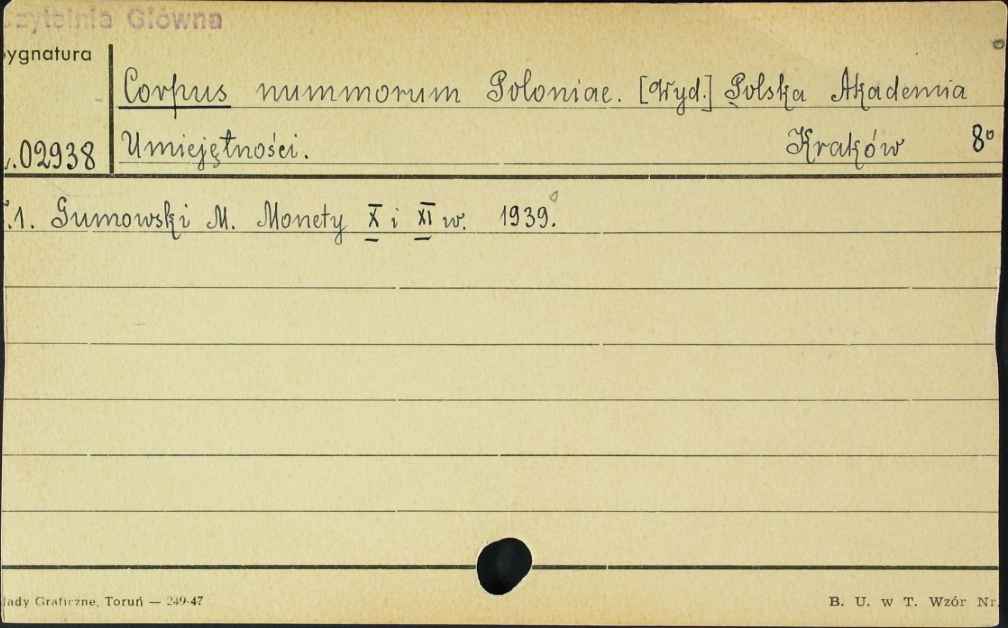 Czytelnia Główna
ygnatura
Corpus nummorum Poloniae. [Wyd.] Polska Akademia
.02938 Umiejętności. Kraków 8º
T.1. Gumowski M. Monety X i XI w. 1939.
łady Graficzne, Toruń — 249-47
B. U. w T. Wzór Nr